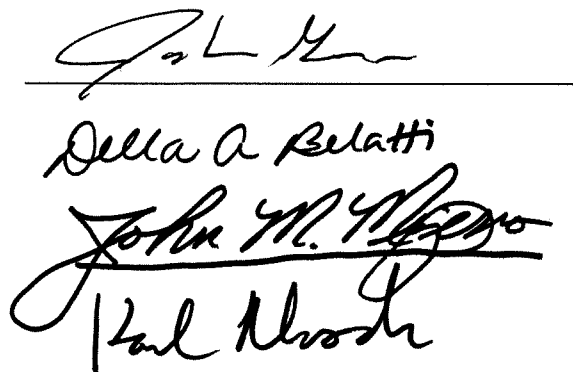 Della A Belatti
John M. Mizuno
Karl Rhoads